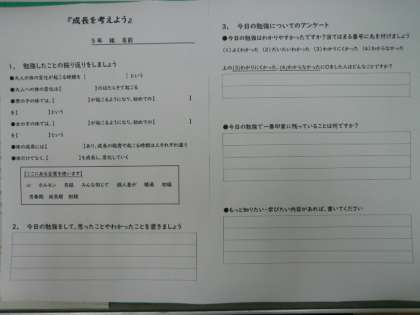 『成長を考えよう』
5年 組 名前
1． 勉強したことの振り返りをしましょう
●大人が体の変化が起こる時期を【 】という
●大人への体の変化は【 】のはたらきで起こる
●男の子の体では、【 】が起こるようになり、初めての【 】
を【 】という
●女の子の体では、【 】が起こるようになり、初めての【 】
を【 】という
●体の成長には【 】あり、成長期で起こる時期は人それぞれ違う
●体だけでなく、【 】も成長し、変化していく
【ここにある言葉を使います】
心 ホルモン 月経 みんな同じで 個人差が 精通 初経
思春期 成長期 射精
2． 今日の勉強をして、思ったことやわかったことを書きましょう
3． 今日の勉強についてのアンケート
●今日の勉強はわかりやすかったですか？当てはまる番号に丸を付けましょう
(1)よくわかった (2)だいたいわかった (3)わかりにくかった (4)わからなかった
上の(3)わかりにくかった、(4)わからなかったに○をした人はどんなことですか？
●今日の勉強で一番印象に残っていることは何ですか？
●もっと知りたい・学びたい内容があれば、書いてください